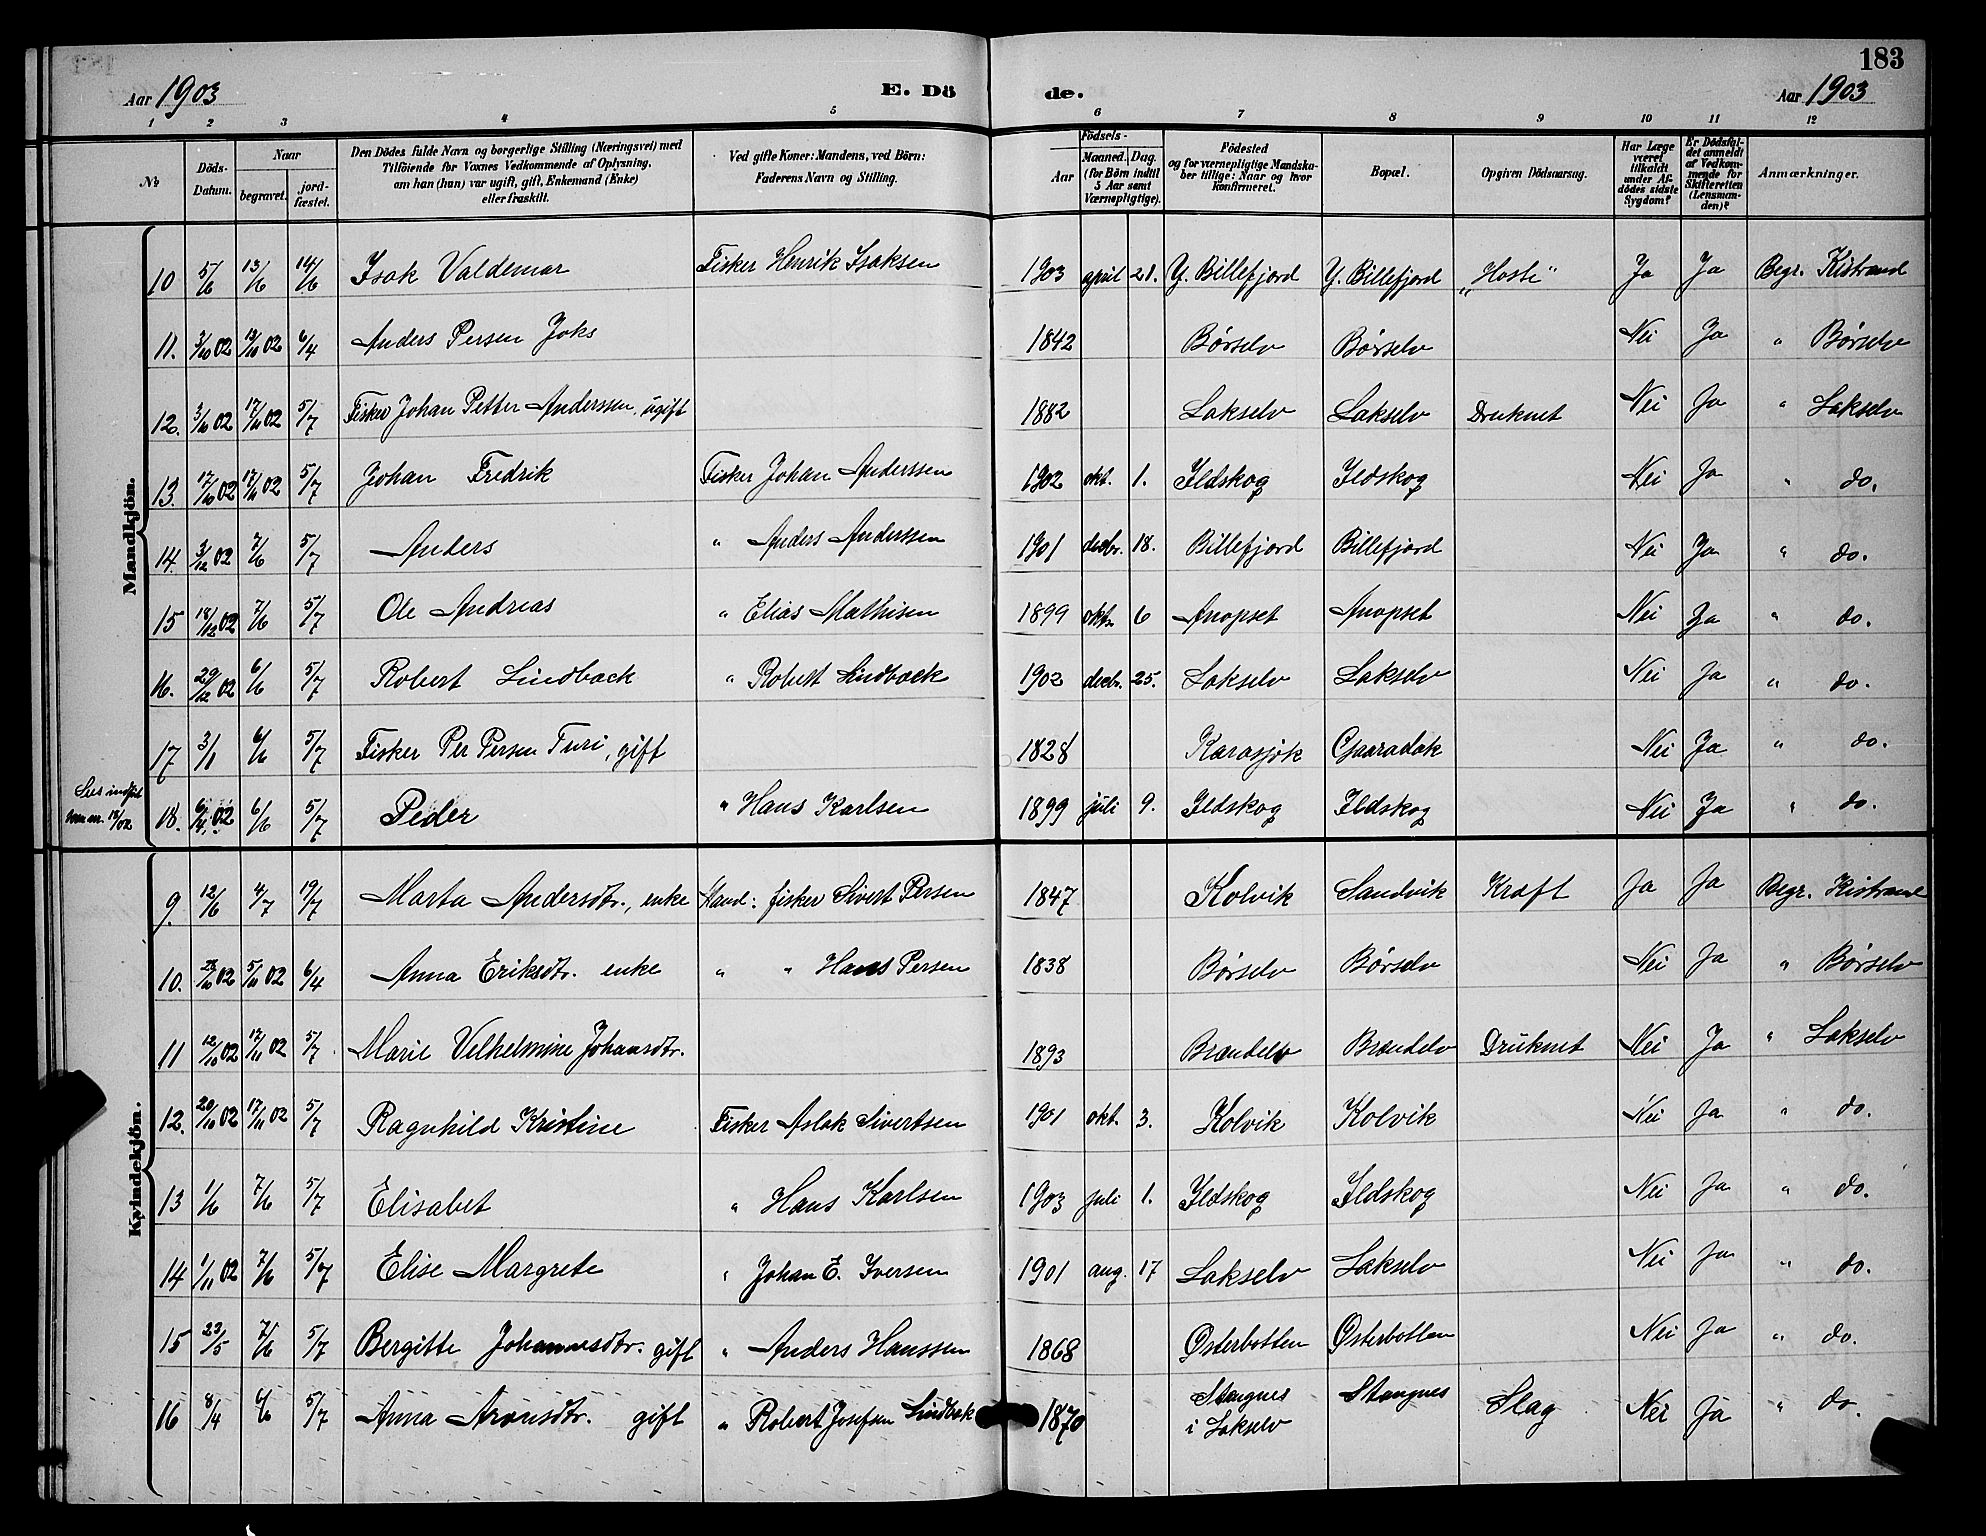 183
Aar 1903 E. Dö de. Aar 1903
1 2 3 4 5 6 7 8 9 10 11 12
№
Döds-Datum.
Naar
begravet.
jord-fæstet.
Den Dödes fulde Navn og borgerlige Stilling (Næringsvei) med
Tilföiende for Voxnes Vedkommende af Oplysning,
om han (hun) var ugift, gift, Enkemand (Enke)
eller fraskilt.
Ved gifte Koner: Mandens, ved Börn:
Faderens Navn og Stilling.
Födsels-
Aar
Maaned. Dag.
(for Börn indtil
5 Aar samt
Værnepligtige).
Födested
og for værnepligtige Mandska-
ber tillige: Naar og hvor
konfirmeret.
Bopæl.
Opgiven Dödsaarsag.
Har Læge
været
tilkaldt
under Af-
dödes sidste
Sygdom?
Er Dödsfal-
det anmeldt
af Vedkom-
mende for
Skifteretten
(Lensman-
den)?
Anmærkninger.
Mandkjön.
10 5/6 13/6 14/6 Isak Valdemar Fisker Henrik Isaksen 1903 april 21. Y. Billefjord Y. Billefjord "Hoste" Ja Ja Begr. Kistrand
11. 3/10 02 12/10 02 6/4 Anders Persen Joks 1842 Børselv Børselv Nei Ja " Børselv
12. 3/10 02 17/11 02 5/7 Fisker Johan Petter Anderssen, ugift 1882 Lakselv Lakselv Druknet Nei Ja " Lakselv
13. 17/10 02 17/11 02 5/7 Johan Fredrik Fisker Johan Anderssen 1902 okt. 1. Ildskog Ildskog Nei Ja " do.
14. 3/12 02 7/6 5/7 Anders " Anders Anderssen 1901 decbr. 18. Billefjord Billefjord Nei Ja " do.
15 18/12 02 7/6 5/7 Ole Andreas " Elias Mathisen 1899 okt. 6 Anopset Anopset Nei Ja " do.
16. 29/12 02 6/6 5/7 Robert Lindback " Robert Lindback 1902 decbr. 25. Lakselv Lakselv Nei Ja " do.
17 3/1 6/6 5/7 Fisker Per Persen Turi, gift 1828 Karasjok Gaaradak Nei Ja " do.
18. 02 6/6 5/7 Peder " Hans Karlsen 1899 juli 9. Ildskog Ildskog Nei Ja " do.
Kvindekjön.
9. 12/6 4/7 19/7 Marta Andersdtr., enke Mand: fisker Sivert Persen 1847 Kolvik Sandvik Kræft Ja Ja Begr. Kistrand
10. 02 5/11 02 6/4 Anna Eriksdtr. enke " " Hans Persen 1838 Børselv Børselv Nei Ja " Børselv
11 12/10 02 17/11 02 5/7 Marie Velhelmine Johansdtr. 1893 Brændelv Brændelv Druknet Nei Ja " Lakselv
12. 20/10 02 17/11 02 5/7 Ragnhild Kristine Fisker Aslak Sivertsen 1901 okt. 3. Kolvik Kolvik Nei Ja " do.
13 1/6 7/6 5/7 Elisabet " Hans Karlsen 1903 juli 1. Ildskog Ildskog Nei Ja " do.
14 1/11 02 7/6 5/7 Elise Margrete " Johan E. Iversen 1901 aug. 17 Lakselv Lakselv Nei Ja " do.
15 23/5 7/6 5/7 Bergitte Johannesdtr. gift " Anders Hanssen 1868 Østerbotten Østerbotten Nei Ja " do.
16 8/4 6/6 5/7 Anna Aronsdtr. gift " Robert Josefsen Lindbak 1870 Stangnes
i Lakselv Stangnes Slag Nei Ja " do.